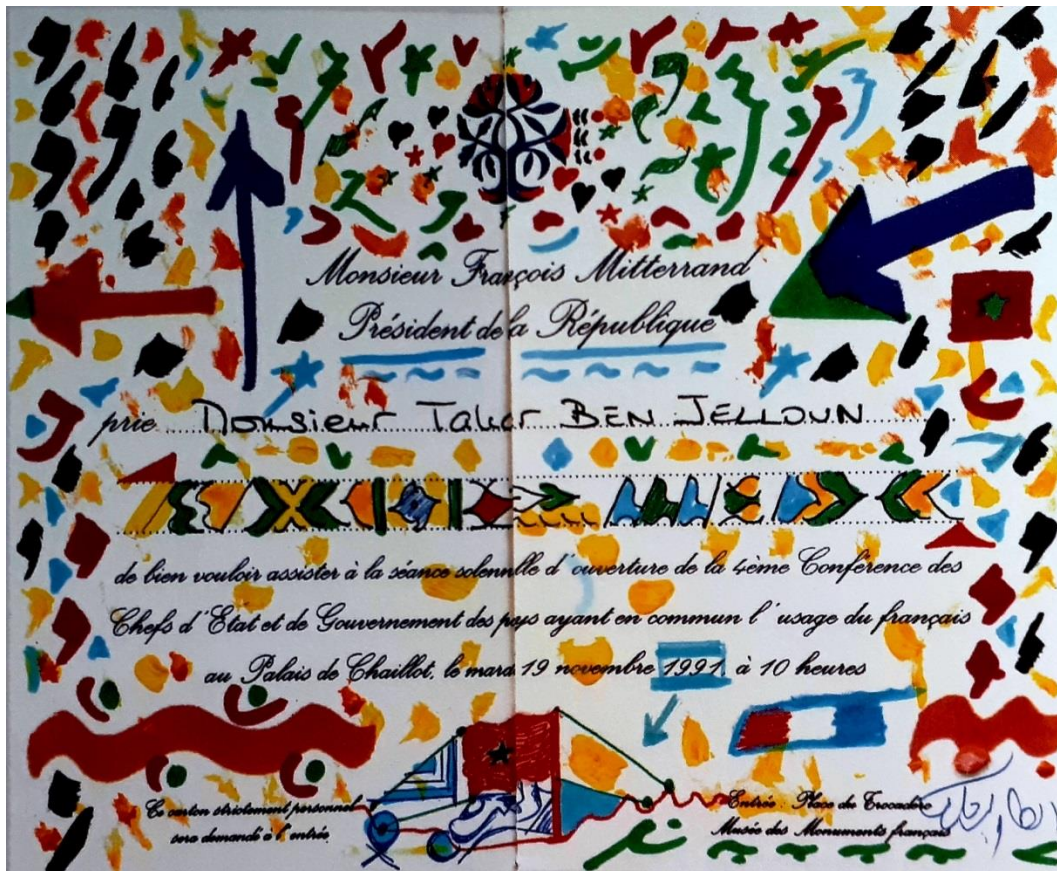 Monsieur François Mitterrand
Président de la République
prie Monsieur Tahar BEN JELLOUN
de bien vouloir assister à la séance solennelle d'ouverture de la 4ème Conférence des
Chefs d'Etat et de Gouvernement des pays ayant en commun l'usage du français
au Palais de Chaillot, le mardi 19 novembre 1991, à 10 heures
Ce carton strictement personnel
sera demandé à l'entrée.
Entrée : Place du Trocadéro
Musée des Monuments français